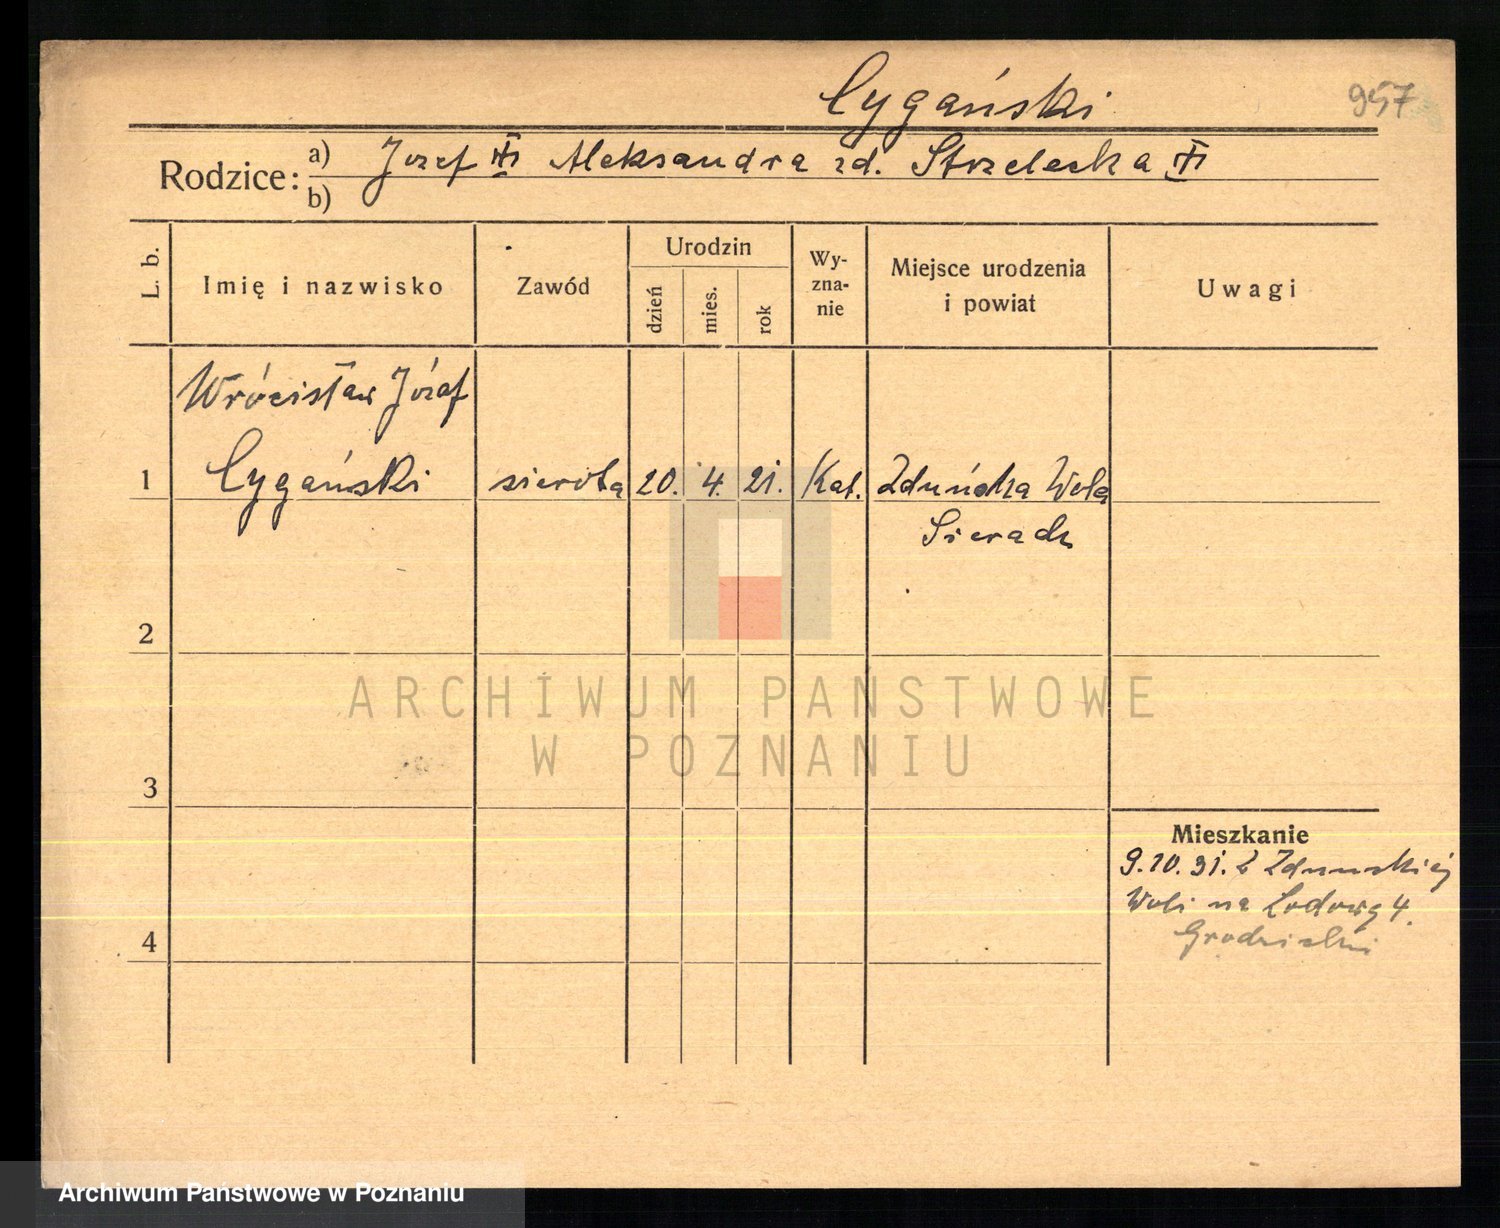 Cygański
957
Rodzice: a) Józef Aleksandra zd. Strzelecka
b)
L. b.
Imię i nazwisko
Zawód
Urodzin
dzień
mies.
rok
Wy-
zna-
nie
Miejsce urodzenia
i powiat
Uwagi
Wrócisław Józef
1 Cygański sierota 20. 4. 21. Kat. Zduńska Wola
Sieradz
2
ARCHIWUM PAŃSTWOWE
W POZNANIU
3
Mieszkanie
9.10.31. z Zduńskiej
Woli na Lodową 4.
4
Archiwum Państwowe w Poznaniu